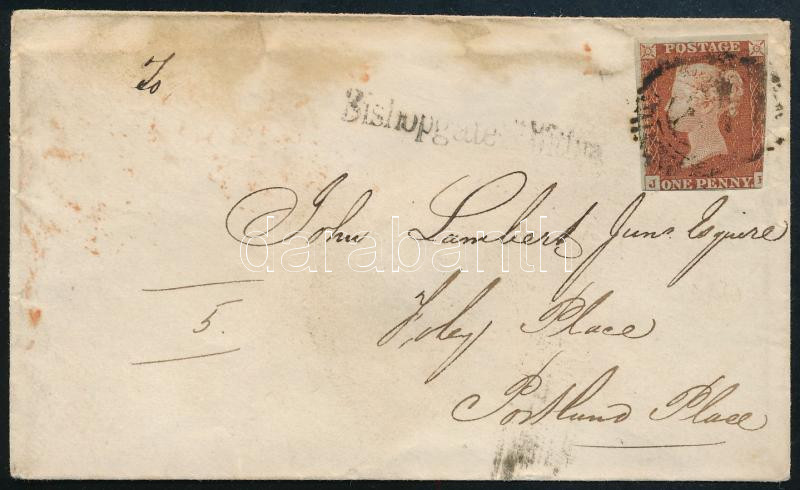 To
POSTAGE
J I
ONE PENNY
Bishopgate
John Lambert Junr Esquire
darabanth
5.
Foley Place
Portland Place